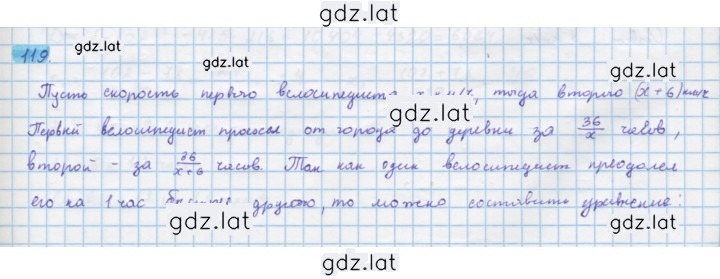 gdz.lat
119.
gdz.lat
gdz.lat
Пусть скорость первого велосипедиста x км/ч, тогда второго (x+6) км/ч
gdz.lat
Первый велосипедист проехал от города до деревни за 36/x часов,
второй - за 36/x+6 часов. Так как один велосипедист преодолел
его на 1 час другого, то можно составить уравнение:
gdz.lat
gdz.lat
gdz.lat